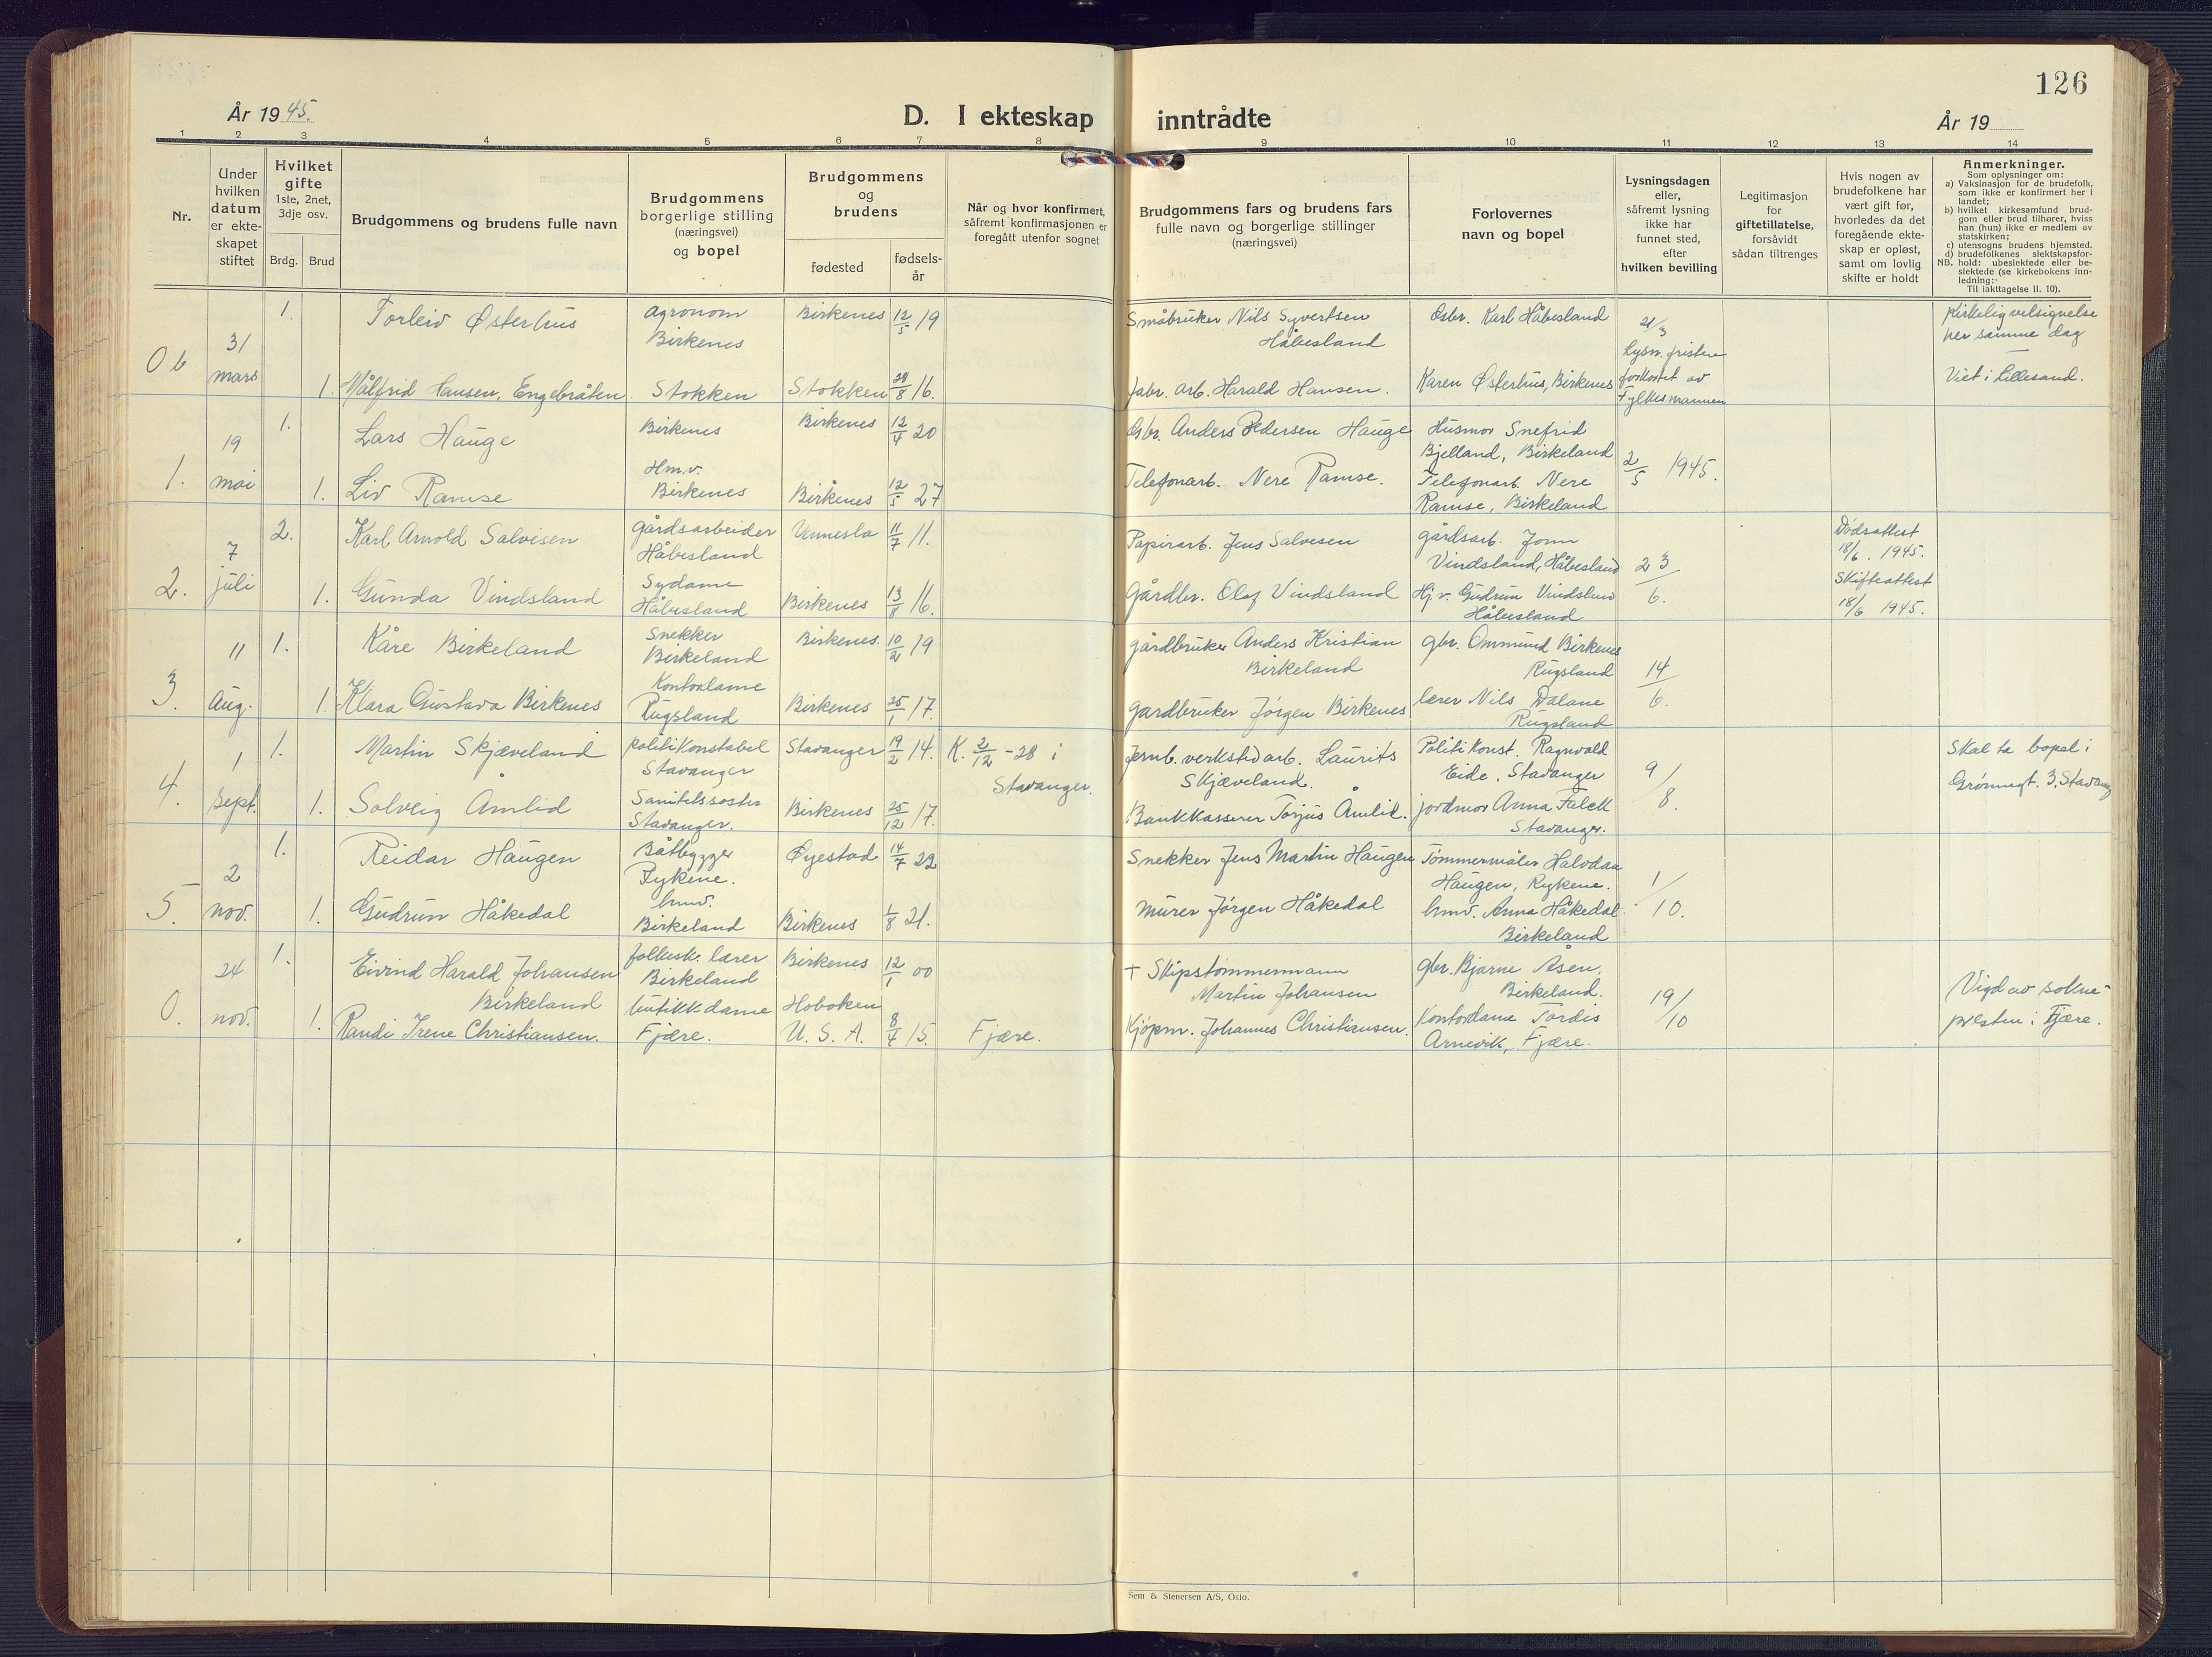 126
År 1945.
D. I ekteskap inntrådte
År 19
1 2 3 4 5 6 7 8 9 10 11 12 13 14
Nr.
Under
hvilken
datum
er ekte-
skapet
stiftet
Hvilket
gifte
1ste, 2net,
3dje osv.
Brdg. Brud
Brudgommens og brudens fulle navn
Brudgommens
borgerlige stilling
(næringsvei)
og bopel
Brudgommens
og
brudens
fødested
fødsels-
år
Når og hvor konfirmert,
såfremt konfirmasjonen er
foregått utenfor sognet
Brudgommens fars og brudens fars
fulle navn og borgerlige stillinger
(næringsvei)
Forlovernes
navn og bopel
Lysningsdagen
eller,
såfremt lysning
ikke har
funnet sted,
efter
hvilken bevilling
Legitimasjon
for
giftetillatelse,
forsåvidt
sådan tiltrenges
Hvis nogen av
brudefolkene har
vært gift før,
hvorledes da det
foregående ekte-
skap er opløst,
samt om lovlig
skifte er holdt
Anmerkninger.
Som oplysninger om:
a) Vaksinasjon for de brudefolk,
som ikke er konfirmert her i
landet;
b) hvilket kirkesamfund brud-
gom eller brud tilhører, hviss
han (hun) ikke er medlem av
statskirken;
c) utensogns brudens hjemsted.
d) brudefolkenes slektskapsfor-
NB. hold: ubeslektede eller be-
slektede (se kirkebokens inn-
ledning:
Til iakttagelse II. 10).
0 b
31
mars
1.
Torleiv Østerhus
Agronom
Birkenes
Birkenes 12/5 19
Småbruker Nils Syvertsen
Håbesland
Gsbr. Karl Håbesland
21/3
Lysn. fristen
forkortet av
Fylkesmannen
Kirkelig velsignelse
her samme dag
Viet i Lillesand.
1. Målfrid Hansen, Engebråten
Stokken
Stokken 29/8 16.
fabr. arb. Harald Hansen.
Karen Østerhus, Birkenes
1.
19
mai
1.
Lars Hauge
Birkenes
Birkenes 12/4 20
Gbr. Anders Pedersen Hauge
Husmor Snefrid
Bjelland, Birkeland
2/5 1945.
1. Liv Ramse
Hm.v.
Birkenes
Birkenes 12/5 27
Telefonarb. Nere Ramse.
Telefonarb. Nere
Ramse, Birkeland
2.
7
juli
2.
Karl Arnold Salvesen
gårdsarbeider
Håbesland
Vennesla 11/7 11.
Papirarb. Jens Salvesen
gårdsarb. Jonn
Vindsland, Håbesland
23/6.
Dødsattest
18/6. 1945.
Skifteattest
18/6 1945.
1. Gunda Vindsland
Sydame
Håbesland
Birkenes 13/8 16.
Gårdbr. Olaf Vindsland
Hj.v. Gudrun Vindsland
Håbesland
3.
11
Aug.
1.
Kåre Birkeland
Snekker
Birkeland
Birkenes 10/2 19
gårdbruker Anders Kristian
Birkeland
gbr. Ommund Birkenes
Rugsland
14/6.
1. Klara Gustava Birkenes
Kontordame
Rugsland
Birkenes 25/1 17.
gardbruker Jørgen Birkenes
lærer Nils Dalane
Rugsland
4.
1
sept.
1.
Martin Skjæveland
politikonstabel
Stavanger
Stavanger 19/2 14.
K. 2/12 - 28 i
Stavanger.
Jernb. verkstedarb. Laurits
Skjæveland.
Politikonst. Ragnvald
Eide, Stavanger
9/8.
Skal ta bopel i
Grønnegt. 3, Stavang
1. Solveig Åmlid
Sanitetssøster
Stavanger.
Birkenes 25/12 17.
Bankkasserer Torjus Åmlid.
jordmor Anna Falck
Stavanger.
5.
2
nov.
1.
Reidar Haugen
Båtbygger
Rykene.
Øyestad 14/7 22
Snekker Jens Martin Haugen
Tømmermåler Halvdan
Haugen, Rykene.
1/10.
1. Gudrun Håkedal
hmv.
Birkeland
Birkenes 1/8 21.
murer Jørgen Håkedal
hmv. Anna Håkedal
Birkeland
0.
24
nov.
1.
Eivind Harald Johansen
Birkeland
folkesk. lærer
Birkeland
Birkenes 12/1 00
+ Skipstømmermann
Martin Johansen
gbr. Bjarne Åsen,
Birkeland.
19/10
Vigd av sokne-
presten i Fjære.
1. Randi Irene Christiansen.
butikkdame
Fjære.
Hoboken
U. S. A. 8/4 15.
Fjære.
Kjøpm. Johannes Christiansen.
Kontordame Tordis
Arnevik, Fjære.
Sem & Stenersen A/S, Oslo.